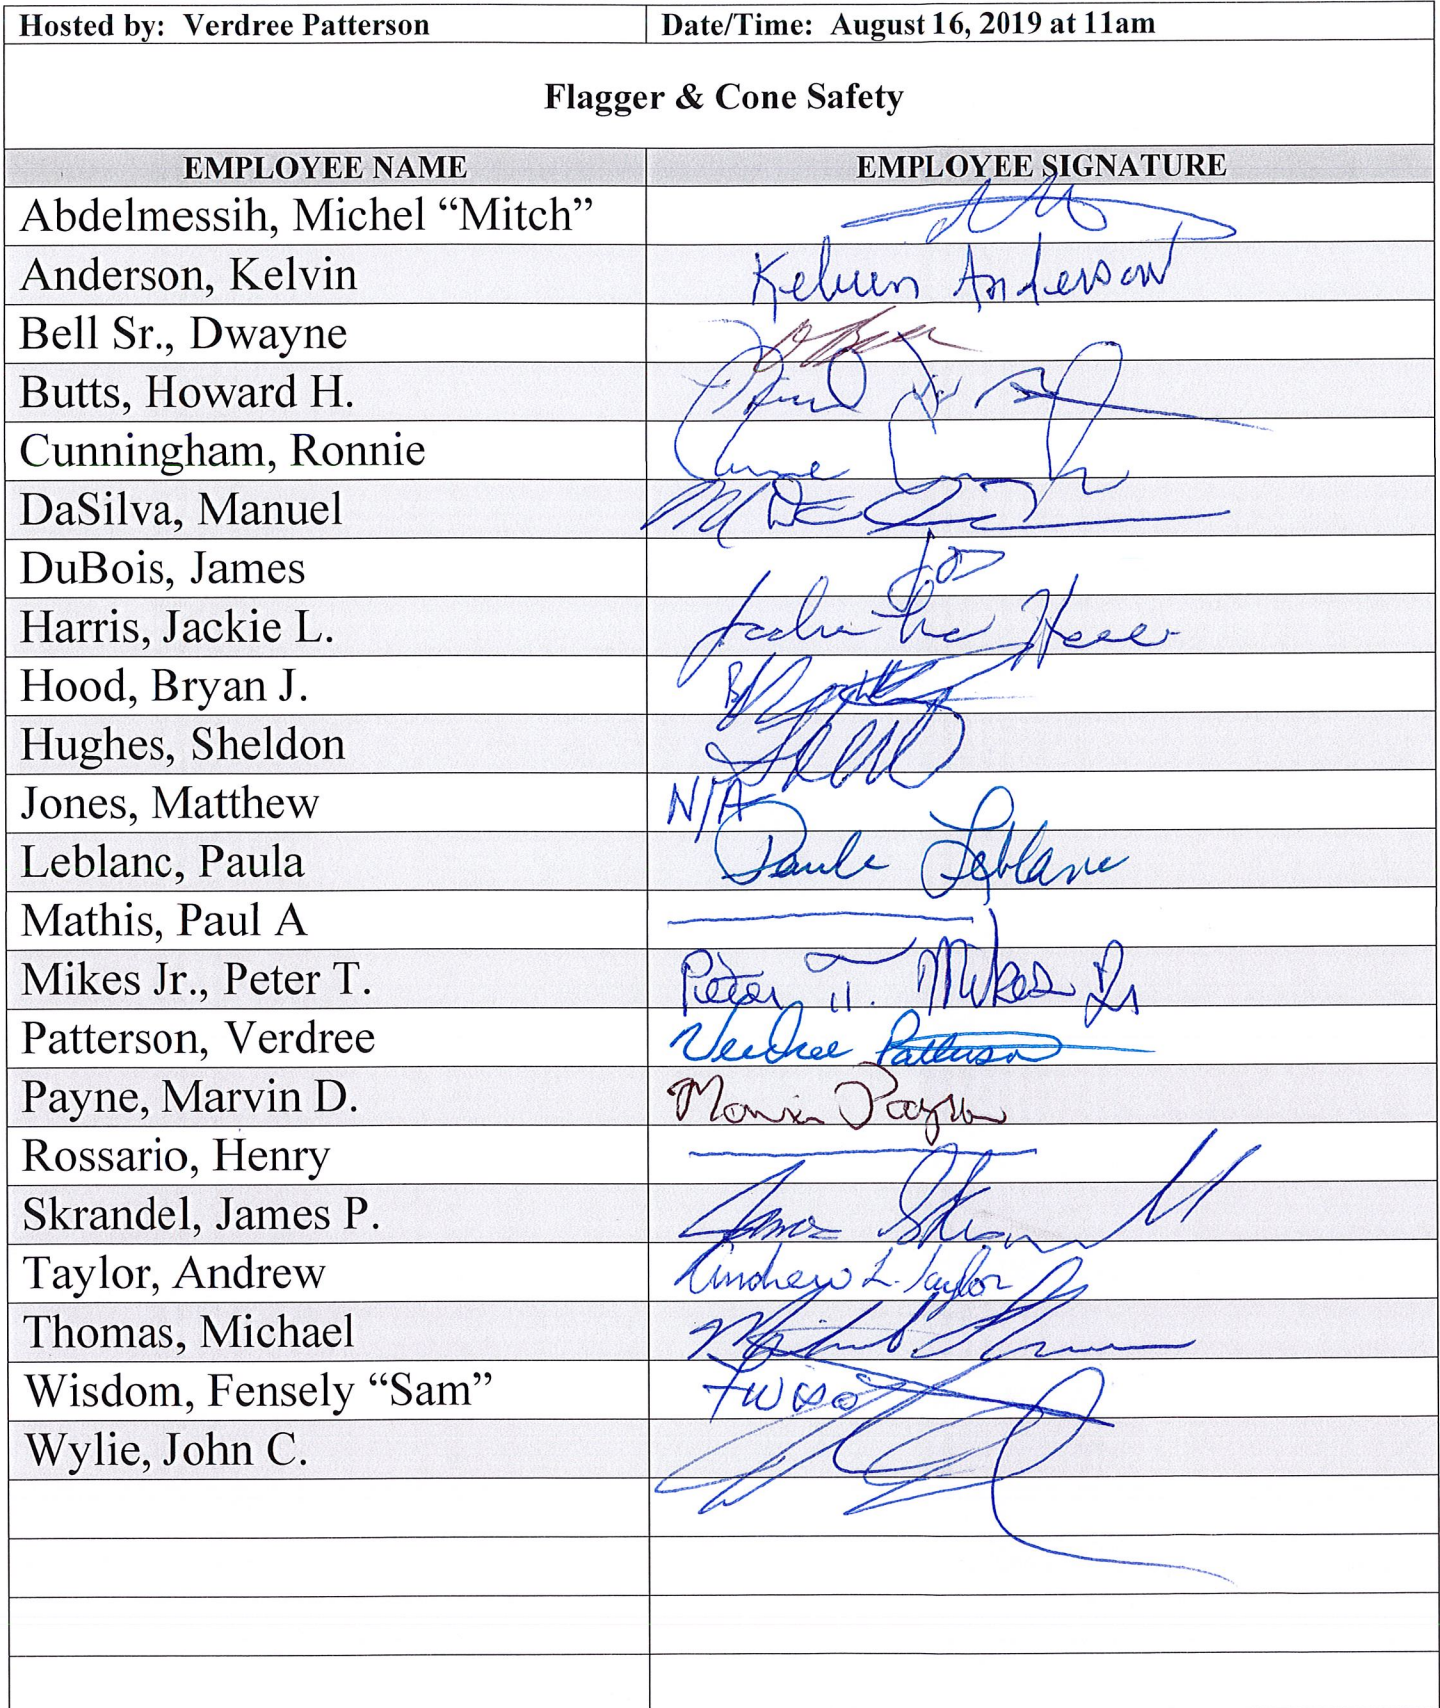 Hosted by: Verdree Patterson Date/Time: August 16, 2019 at 11am
Flagger & Cone Safety
EMPLOYEE NAME EMPLOYEE SIGNATURE
Abdelmessih, Michel “Mitch”
Anderson, Kelvin Kelvin Anderson
Bell Sr., Dwayne
Butts, Howard H.
Cunningham, Ronnie
DaSilva, Manuel
DuBois, James
Harris, Jackie L.
Hood, Bryan J.
Hughes, Sheldon
Jones, Matthew N/A
Leblanc, Paula Paula Leblanc
Mathis, Paul A
Mikes Jr., Peter T. Peter T. Mikes Jr
Patterson, Verdree Verdree Patterson
Payne, Marvin D. Marvin Payne
Rossario, Henry
Skrandel, James P. James
Taylor, Andrew Andrew L. Taylor
Thomas, Michael
Wisdom, Fensely “Sam”
Wylie, John C.